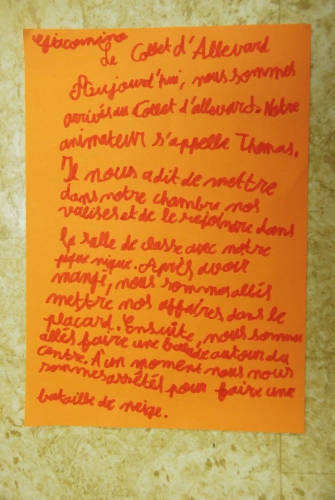 Giacomino
Le Collet d'Allevard
Aujourd'hui, nous sommes
arrivés au Collet d'allevard. Notre
animateur s'appelle Thomas.
Il nous a dit de mettre
dans notre chambre nos
valises et de le rejoindre dans
la salle de classe avec notre
pique nique. Après avoir
mangé, nous sommes allés
mettre nos affaires dans le
placard. Ensuite, nous sommes
allés faire une balade autour du
centre. A un moment nous nous
sommes arrêtés pour faire une
bataille de neige.